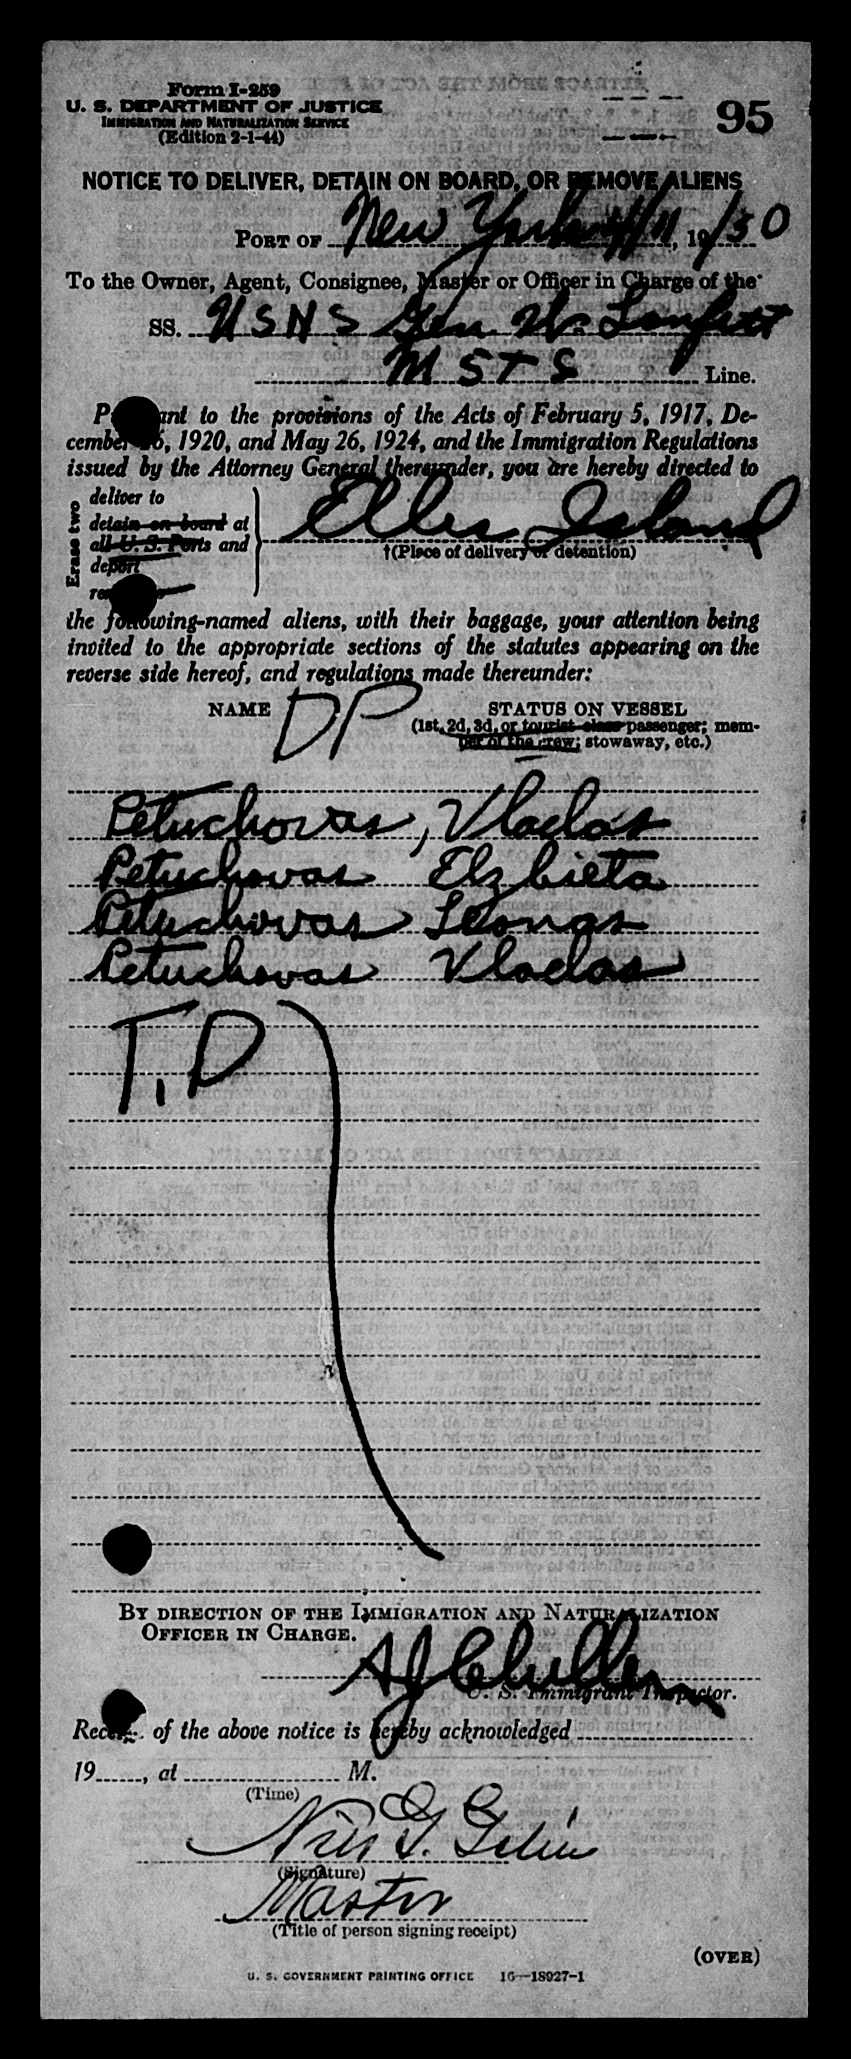 Form I-259
U. S. DEPARTMENT OF JUSTICE
IMMIGRATION AND NATURALIZATION SERVICE
(Edition 2-1-44)
95
NOTICE TO DELIVER, DETAIN ON BOARD, OR REMOVE ALIENS
PORT OF New York 4/11, 19/50
To the Owner, Agent, Consignee, Master or Officer in Charge of the
SS. USNS Gen. W.
M S T S Line.
ant to the provisions of the Acts of February 5, 1917, De-
cember 26, 1920, and May 26, 1924, and the Immigration Regulations
issued by the Attorney General thereunder, you are hereby directed to
Erase two
deliver to
detain on board at
all U. S. Ports and
deport
Ellis Island
†(Place of delivery or detention)
the following-named aliens, with their baggage, your attention being
invited to the appropriate sections of the statutes appearing on the
reverse side hereof, and regulations made thereunder:
NAME DP STATUS ON VESSEL
(1st, 2d, 3d, or tourist class passenger; mem-
ber of the crew; stowaway, etc.)
Petuchovas, Vladas
Petuchovas Elzbieta
Petuchovas Leonas
Petuchovas Vladas
T.D
BY DIRECTION OF THE IMMIGRATION AND NATURALIZATION
OFFICER IN CHARGE.
U. S. Immigrant Inspector.
Receipt of the above notice is hereby acknowledged
19......, at M.
(Time)
Nils
(Signature)
Master
(Title of person signing receipt)
(OVER)
U. S. GOVERNMENT PRINTING OFFICE 16—18927-1